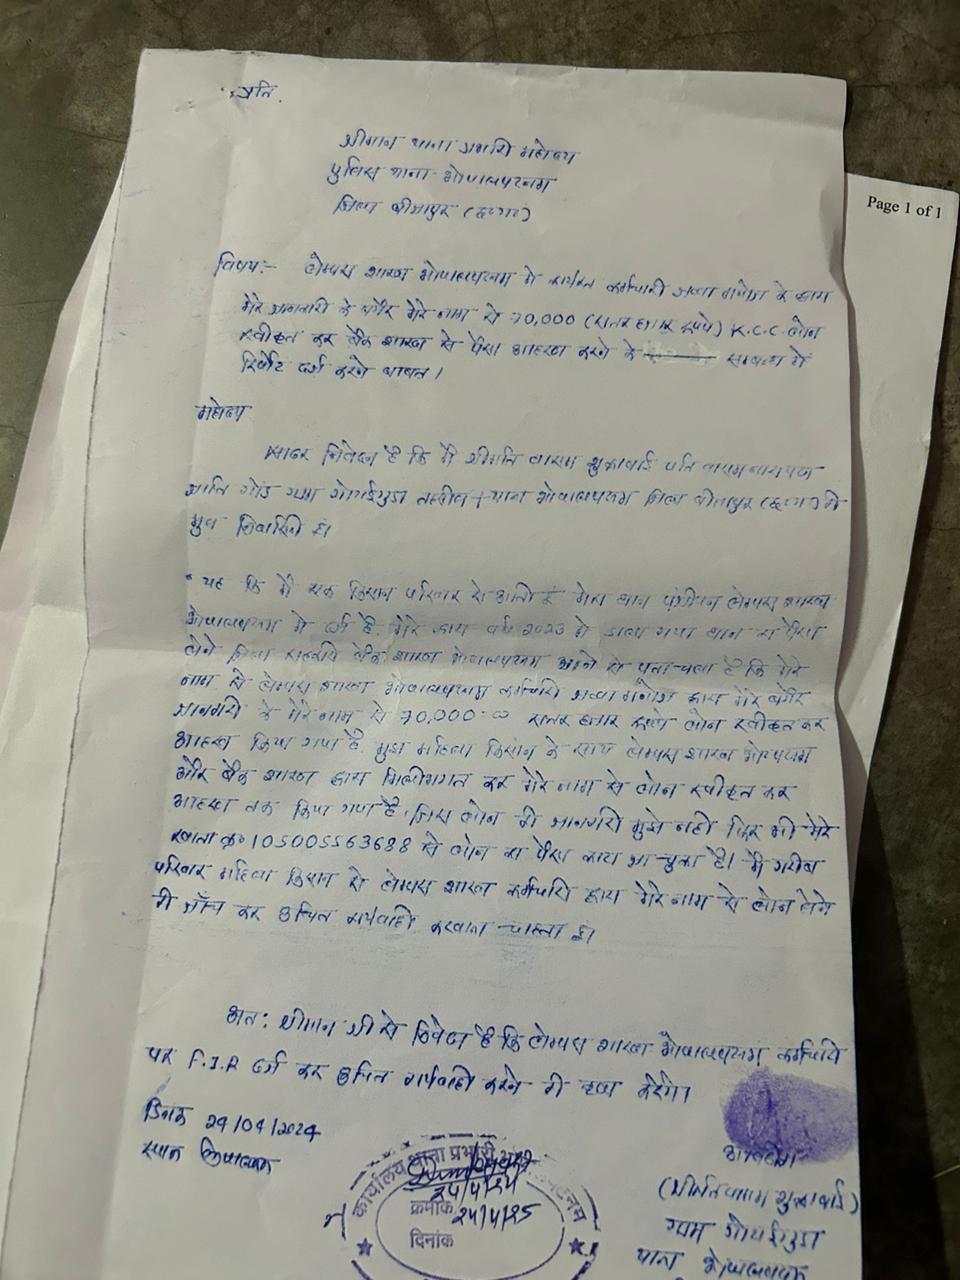 प्रति,
श्रीमान थाना प्रभारी महोदय
पुलिस थाना भोपालपटनम
जिला बीजापुर (छ०ग०)
Page 1 of 1
विषय:- लेम्पस शाखा भोपालपटनम में कार्यरत कर्मचारी के द्वारा
मेरे जानकारी के बगैर मेरे नाम से 70,000 (सत्तर हजार रूपये) K.C.C लोन
स्वीकृत कर बैंक शाखा से पैसा आहरण करने के सम्बन्ध में
रिपोर्ट दर्ज करने बाबत।
महोदय
सादर निवेदन है कि मैं श्रीमति वासम शुक्राबाई पति वासम नारायण
जाति गोंड ग्राम तहसील + थाना भोपालपटनम जिला बीजापुर (छ०ग०) की
मुल निवासी हूं।
यह कि मैं एक किसान परिवार से आती हूं मेरा धान पंजीयन लेम्पस शाखा
भोपालपटनम में दर्ज है. मेरे द्वारा वर्ष 2023 में डाला गया धान का पैसा
लेने जिला सहकारी बैंक शाखा भोपालपटनम आने से पता चला है कि मेरे
नाम से लेम्पस शाखा भोपालपटनम कर्मचारी द्वारा मेरे बगैर
जानकारी के मेरे नाम से 70,000=00 सत्तर हजार रूपये लोन स्वीकृत कर
आहरण किया गया है मुझ महिला किसान के साथ लेम्पस शाखा
और बैंक शाखा द्वारा मिलीभगत कर मेरे नाम से लोन स्वीकृत कर
आहरण तक किया गया है, जिस लोन की जानकारी मुझे नही फिर भी मेरे
खाता क्र० 105005563688 से लोन का पैसा काटा जा चुका है। मैं गरीब
परिवार महिला किसान से लेम्पस शाखा कर्मचारी द्वारा मेरे नाम से लोन लेने
की जाँच कर उचित कार्यवाही करवाना चाहता हूं।
अत: श्रीमान जी से निवेदन है कि लेम्पस शाखा भोपालपटनम कर्मचारी
पर F.I.R दर्ज कर उचित कार्यवाही करने की कृपा करेंगे।
दिनांक 29/04/2024
स्थान
कार्यालय थाना प्रभारी
24/4/24
क्रमांक
24/4/25
दिनांक
आवेदिका
(श्रीमति वासम शुक्राबाई)
ग्राम
थाना भोपालपटनम